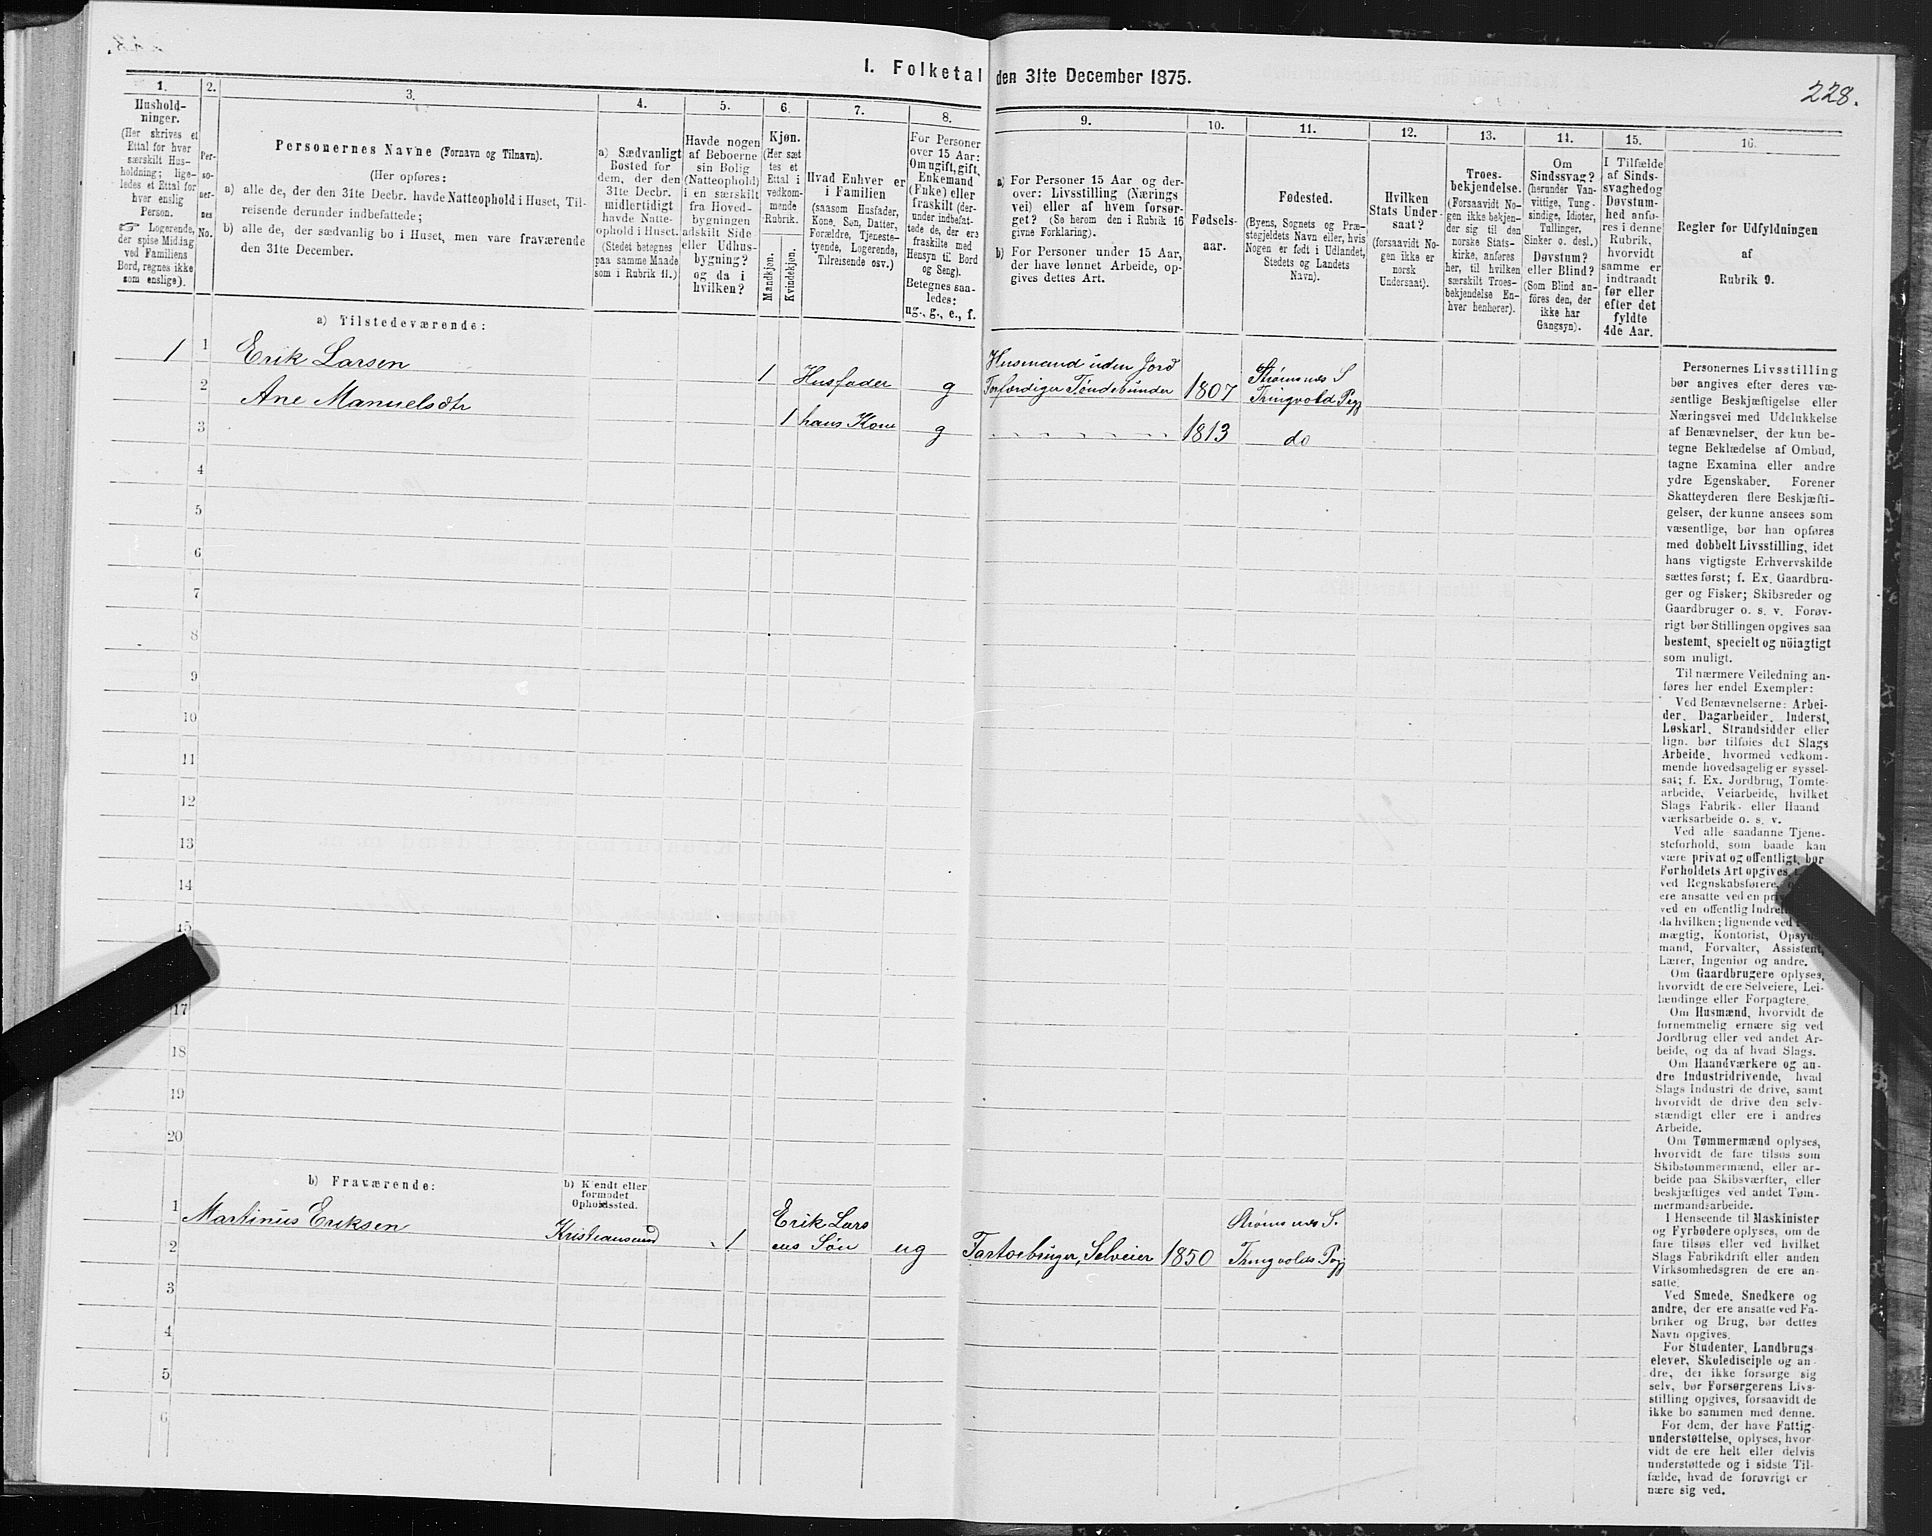 I. Folketal den 31te December 1875.
228.
1.
Hushold-
ninger.
(Her skrives et
Ettal for hver
særskilt Hus-
holdning; lige-
ledes et Ettal for
hver enslig
Person.
Logerende,
der spise Middag
ved Familiens
Bord, regnes ikke
som enslige).
2.
Per-
so-
ner-
nes
No.
3.
Personernes Navne (Fornavn og Tilnavn).
(Her opføres:
a) alle de, der den 31te Decbr. havde Natteophold i Huset, Til-
reisende derunder indbefattede;
b) alle de, der sædvanlig bo i Huset, men vare fraværende
den 31te December.
4.
a) Sædvanligt
Bosted for
dem, der den
31te Decbr.
midlertidigt
havde Natte-
ophold i Huset.
(Stedet betegnes
paa samme Maade
som i Rubrik 11.)
5.
Havde nogen
af Beboerne
sin Bolig
(Natteophold)
i en særskilt
fra Hoved-
bygningen
adskilt Side
eller Udhus-
bygning?
og da i
hvilken?
6.
Kjøn.
(Her sæt
tes et
Ettal i
vedkom-
mende
Rubrik.
Mandkjøn.
Kvindekjøn.
7.
Hvad Enhver er
i Familien
(saasom Husfader,
Kone, Søn, Datter,
Forældre, Tjeneste-
tyende, Logerende,
Tilreisende osv.)
8.
For Personer
over 15 Aar:
Om ugift, gift,
Enkemand
(Enke) eller
fraskilt (der-
under indbefat-
tede de, der ere
fraskilte med
Hensyn til Bord
og Seng).
Betegnes saa-
ledes:
ug., g., e., f.
9.
a) For Personer 15 Aar og der-
over: Livsstilling (Nærings
vei) eller af hvem forsør-
get? (Se herom den i Rubrik 16
givne Forklaring).
b) For Personer under 15 Aar,
der have lønnet Arbeide, op-
gives dettes Art.
10.
Fødsels-
aar.
11.
Fødested.
(Byens, Sognets og Præ-
stegjeldets Navn eller, hvis
Nogen er født i Udlandet,
Stedets og Landets
Navn).
12.
Hvilken
Stats Under-
saat?
(forsaavidt No-
gen ikke er
norsk
Undersaat).
13.
Troes-
bekjendelse.
(Forsaavidt No-
gen ikke bekjen-
der sig til den
norske Stats-
kirke, anføres
her, til hvilken
særskilt Troes-
bekjendelse En-
hver henhører).
14.
Om
Sindssvag?
(herunder Van-
vittige, Tung-
sindige, Idioter,
Tullinger,
Sinker o. desl.)
Døvstum?
eller Blind?
(Som Blind an-
føres den, der
ikke har
Gangsyn).
15.
I Tilfælde
af Sinds-
svaghed og
Døvstum-
hed anfø-
res i denne
Rubrik,
hvorvidt
samme er
indtraadt
før eller
efter det
fyldte
4de Aar.
16.
Regler for Udfyldningen
af
Rubrik 9.
a) Tilstedeværende:
1
1
Erik Larsen
1
Husfader
g
Husmand uden Jord
Forfærdiger Tøndebunder
1807
Strømsnes S
Thingvold Pgj
2
Ane Manuelsdtr
1
hans Kone
g
1813
do
3
4
5
6
7
8
9
10
11
12
13
14
15
17
18
19
20
b) Fraværende:
b) Kjendt eller
formodet
Opholdssted.
1
Martinus Eriksen
Kristiansund
1
Erik Lars
ens Søn
ug
Selveier
1850
Strømsnes S.
Thingvolds Pgj
2
3
4
5
6
Personernes Livsstilling
bør angives efter deres væ-
sentlige Beskjæftigelse eller
Næringsvei med Udelukkelse
af Benævnelser, der kun be-
tegne Beklædelse af Ombud,
tagne Examina eller andre
ydre Egenskaber. Forener
Skatteyderen flere Beskjæfti-
gelser, der kunne ansees som
væsentlige, bør han opføres
med dobbelt Livsstilling, idet
hans vigtigste Erhvervskilde
sættes først; f. Ex. Gaardbru-
ger og Fisker; Skibsreder og
Gaardbruger o. s. v. Forøv-
rigt bør Stillingen opgives saa
bestemt, specielt og nöiagtigt
som muligt.
Til nærmere Veiledning an-
føres her endel Exempler:
Ved Benævnelserne: Arbei-
der, Dagarbeider, Inderst,
Løskarl, Strandsidder eller
lign. bør tilføies det Slags
Arbeide, hvormed vedkom-
mende hovedsagelig er syssel-
sat; f. Ex. Jordbrug, Tomte-
arbeide, Veiarbeide, hvilket
Slags Fabrik- eller Haand
værksarbeide o. s. v.
Ved alle saadanne Tjene-
steforhold, som baade kan
være privat og offentligt, bør
Forholdets Art opgives,
ved Regnskabsførere,
ere ansatte ved en
ved en offentlig
da hvilken; lignende ved
mægtig, Kontorist,
mand, Forvalter, Assistent,
Lærer, Ingeniør og andre.
Om Gaardbrugere oplyses,
hvorvidt de ere Selveiere, Lei-
lændinge eller Forpagtere.
Om Husmænd, hvorvidt de
fornemmelig ernære sig ved
Jordbrug eller ved andet Ar-
beide, og da af hvad Slags.
Om Haandværkere og an-
dre Industridrivende, hvad
Slags Industri de drive, samt
hvorvidt de drive den selv-
stændigt eller ere i andres
Arbeide.
Om Tømmermænd oplyses,
hvorvidt de fare tilsøs som
Skibstømmermænd, eller ar-
beide paa Skibsværfter, eller
beskjæftiges ved andet Tøm-
mermandsarbeide.
I Henseende til Maskinister
og Fyrbødere oplyses, om de
fare tilsøs eller ved hvilket
Slags Fabrikdrift eller anden
Virksomhedsgren de ere an-
satte.
Ved Smede, Snedkere og
andre, der ere ansatte ved Fa-
briker og Brug, bør dettes
Navn opgives.
For Studenter, Landbrugs-
elever, Skoledisciple og an-
dre, der ikke forsørge sig
selv, bør Forsørgerens Livs-
stilling opgives, forsaavidt de
ikke bo sammen med denne.
For dem, der have Fattig-
understøttelse, oplyses, hvor-
vidt de ere helt eller delvis
understøttede og i sidste Til-
fælde, hvad de forøvrigt er
nære sig ved.